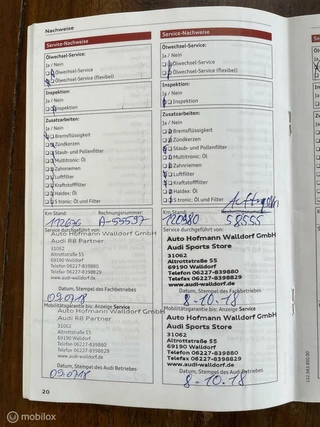 Nachweise
Service-Nachweise
Ölwechsel-Service:
Ja / Nein
Ölwechsel-Service
Ölwechsel-Service (flexibel)
Inspektion:
Ja / Nein
Inspektion
Zusatzarbeiten:
Ja / Nein
Bremsflüssigkeit
Zündkerzen
Staub- und Pollenfilter
Multitronic: Öl
Zahnriemen
Luftfilter
Kraftstofffilter
Haldex: Öl
S tronic: Öl und Filter
Km Stand: Rechnungsnummer:
112676 A-55537
Service durchgeführt von:
Auto Hofmann Walldorf GmbH
Audi R8 Partner
31062
Altrottstraße 55
69190 Walldorf
Telefon 06227-839880
Telefax 06227-8398829
www.audi-walldorf.de
Datum, Stempel des Fachbetriebs
09.07.18
Mobilitätsgarantie bis: Anzeige Service
Auto Hofmann Walldorf GmbH
Audi R8 Partner
31062
Altrottstraße 55
69190 Walldorf
Telefon 06227-839880
Telefax 06227-8398829
www.audi-walldorf.de
Datum, Stempel des Audi Betriebes
09.07.18
20
Service-Nachweise
Ölwechsel-Service:
Ja / Nein
Ölwechsel-Service
Ölwechsel-Service (flexibel)
Inspektion:
Ja / Nein
Inspektion
Zusatzarbeiten:
Ja / Nein
Bremsflüssigkeit
Zündkerzen
Staub- und Pollenfilter
Multitronic: Öl
Zahnriemen
Luftfilter
Kraftstofffilter
Haldex: Öl
S tronic: Öl und Filter
Km Stand:
58555
Service durchgeführt von:
Auto Hofmann Walldorf GmbH
Audi Sports Store
31062
Altrottstraße 55
69190 Walldorf
Telefon 06227-839880
Telefax 06227-8398829
www.audi-walldorf.de
Datum, Stempel des Fachbetriebs
8.10.18
Mobilitätsgarantie bis: Anzeige Service
Auto Hofmann Walldorf GmbH
Audi Sports Store
31062
Altrottstraße 55
69190 Walldorf
Telefon 06227-839880
Telefax 06227-8398829
www.audi-walldorf.de
Datum, Stempel des Audi Betriebes
8.10.18
© mobilox